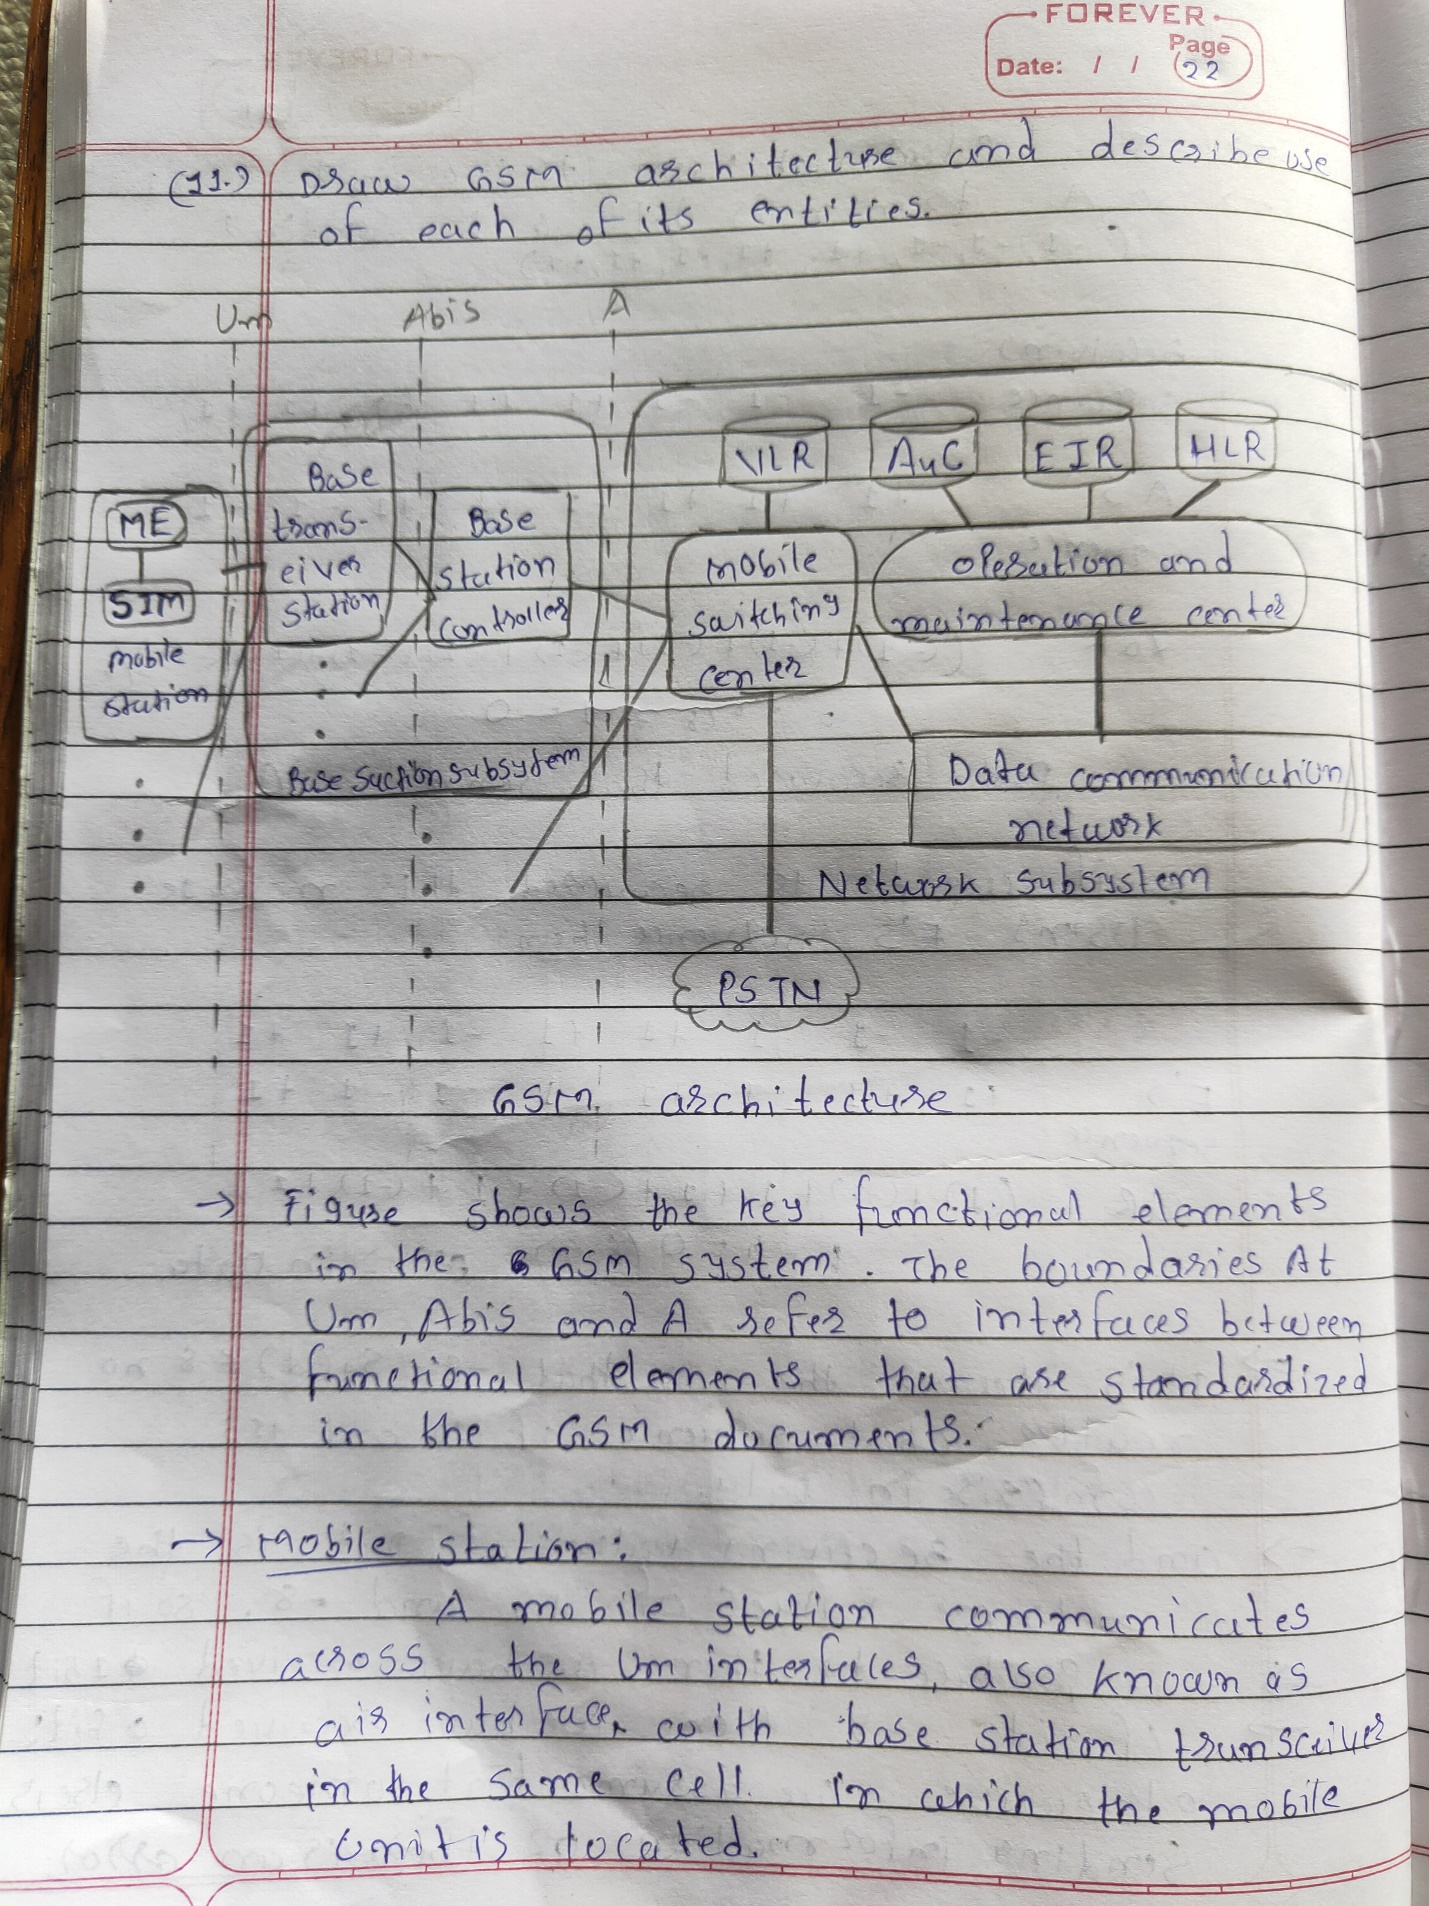 FOREVER
Page
Date: / / 22
(11.) Draw GSM architecture and describe use
of each of its entities.
Um Abis A
VLR AuC EIR HLR
ME
SIM
mobile
station
Base
trans-
eiver
station
Base
station
controller
Base Suction subsystem
mobile
switching
center
operation and
maintenance center
Data communication
network
Network subsystem
PSTN
GSM architecture
→ Figure shows the key functional elements
in the GSM system. The boundaries At
Um, Abis and A refer to interfaces between
functional elements that are standardized
in the GSM documents.
→ Mobile station:
A mobile station communicates
across the Um interfaces, also known as
air interface, with base station transceiver
in the same cell in which the mobile
unit is located.